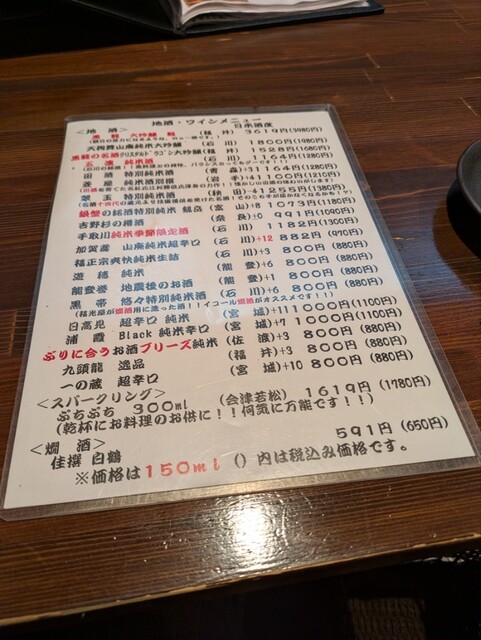 地酒・ワインメニュー
<地 酒> 日本酒度
黒龍 大吟醸 龍 (福 井) 3619円(3980円)
天狗舞山廃純米大吟醸 (石 川) 1800円(1980円)
黒龍の名酒クリスタルドラゴン大吟醸(福 井) 1528円(1680円)
五 凛 純米酒 (石 川) 1164円(1280円)
田 酒 特別純米酒 (青 森)+3 1164円(1280円)
菱 屋 純米酒別撰 (岩 手)+4 1100円(1210円)
翠 玉 特別純米酒 1255円(1380円)
銀盤の銘酒特別純米 (富 山)+8 1073円(1180円)
吉野杉の樽酒 (奈 良)±0 991円(1090円)
手取川純米季節限定酒 (石 川) 1182円(1300円)
加賀鳶 山廃純米超辛口 (石 川)+12 882円(970円)
福正宗爽快純米生詰 (石 川)+3 800円(880円)
遊 穂 純米 (能 登)+6 800円(880円)
能登誉 地震後のお酒 (能 登)+1 800円(880円)
黒 帯 悠々特別純米酒 (石 川)+6 800円(880円)
(福光屋が燗酒用に造った酒!!イコール燗酒がオススメです!!)
日高見 超辛口 純米 (宮 城)+11 1000円(1100円)
浦 霞 Black 純米辛口 (宮 城)+7 1000円(1100円)
ぶりに合うお酒ブリーズ純米 (佐 渡)+3 800円(880円)
九頭龍 逸品 (福 井)+3 800円(880円)
一の蔵 超辛口 (宮 城)+10 800円(880円)
<スパークリング>
ぷちぷち 300ml (会津若松) 1619円(1780円)
(乾杯にお料理のお供に!!何気に万能です!!)
<燗 酒>
佳撰 白鶴 591円(650円)
※価格は150ml ()内は税込み価格です。